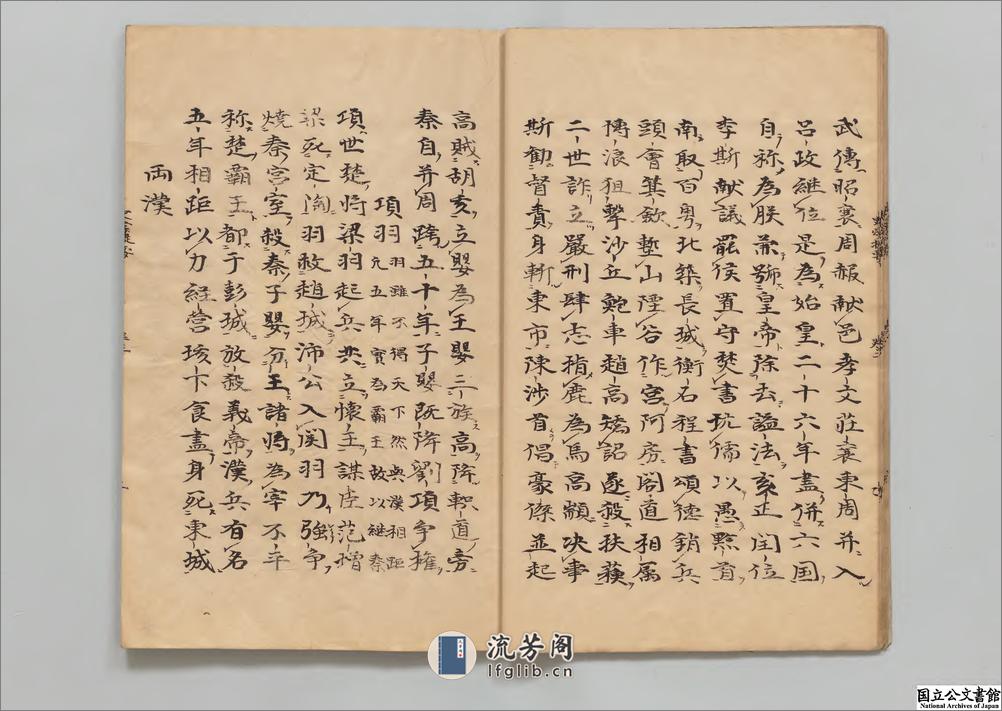 武傳昭襄周赧献邑孝文莊襄東周并入
呂政継位是為始皇二十六年盡併六国
自称為朕兼號皇帝除去謚法紊正閏位
李斯献議罷侯置守焚書坑儒以愚黔首
南取百粤北築長城衡石程書頌德銷兵
頭會箕歛塹山堙谷作宮阿房閣道相属
博浪狙擊沙丘鮑車趙高矯詔遂殺扶蘇
二世詐立嚴刑肆志指鹿為馬高顓决事
斯勧督責身斬東市陳渉首倡豪傑並起
高賊胡亥立嬰為王嬰三族高降軹道旁
秦自并周踰五十年子嬰既降劉項争権
項羽羽雖不獨天下然與漢相距
羽凢五年實為霸王故以継秦
項世楚将梁羽起兵共立懐王謀臣范增
梁死定陶羽救趙城沛公入関羽乃強争
燒秦宮室殺秦子嬰分王諸将為宰不平
称楚霸王都于彭城放殺義帝漢兵有名
五年相距以力経營垓下食盡身死東城
両漢
流芳阁
lfglib.cn
国立公文書館
National Archives of Japan